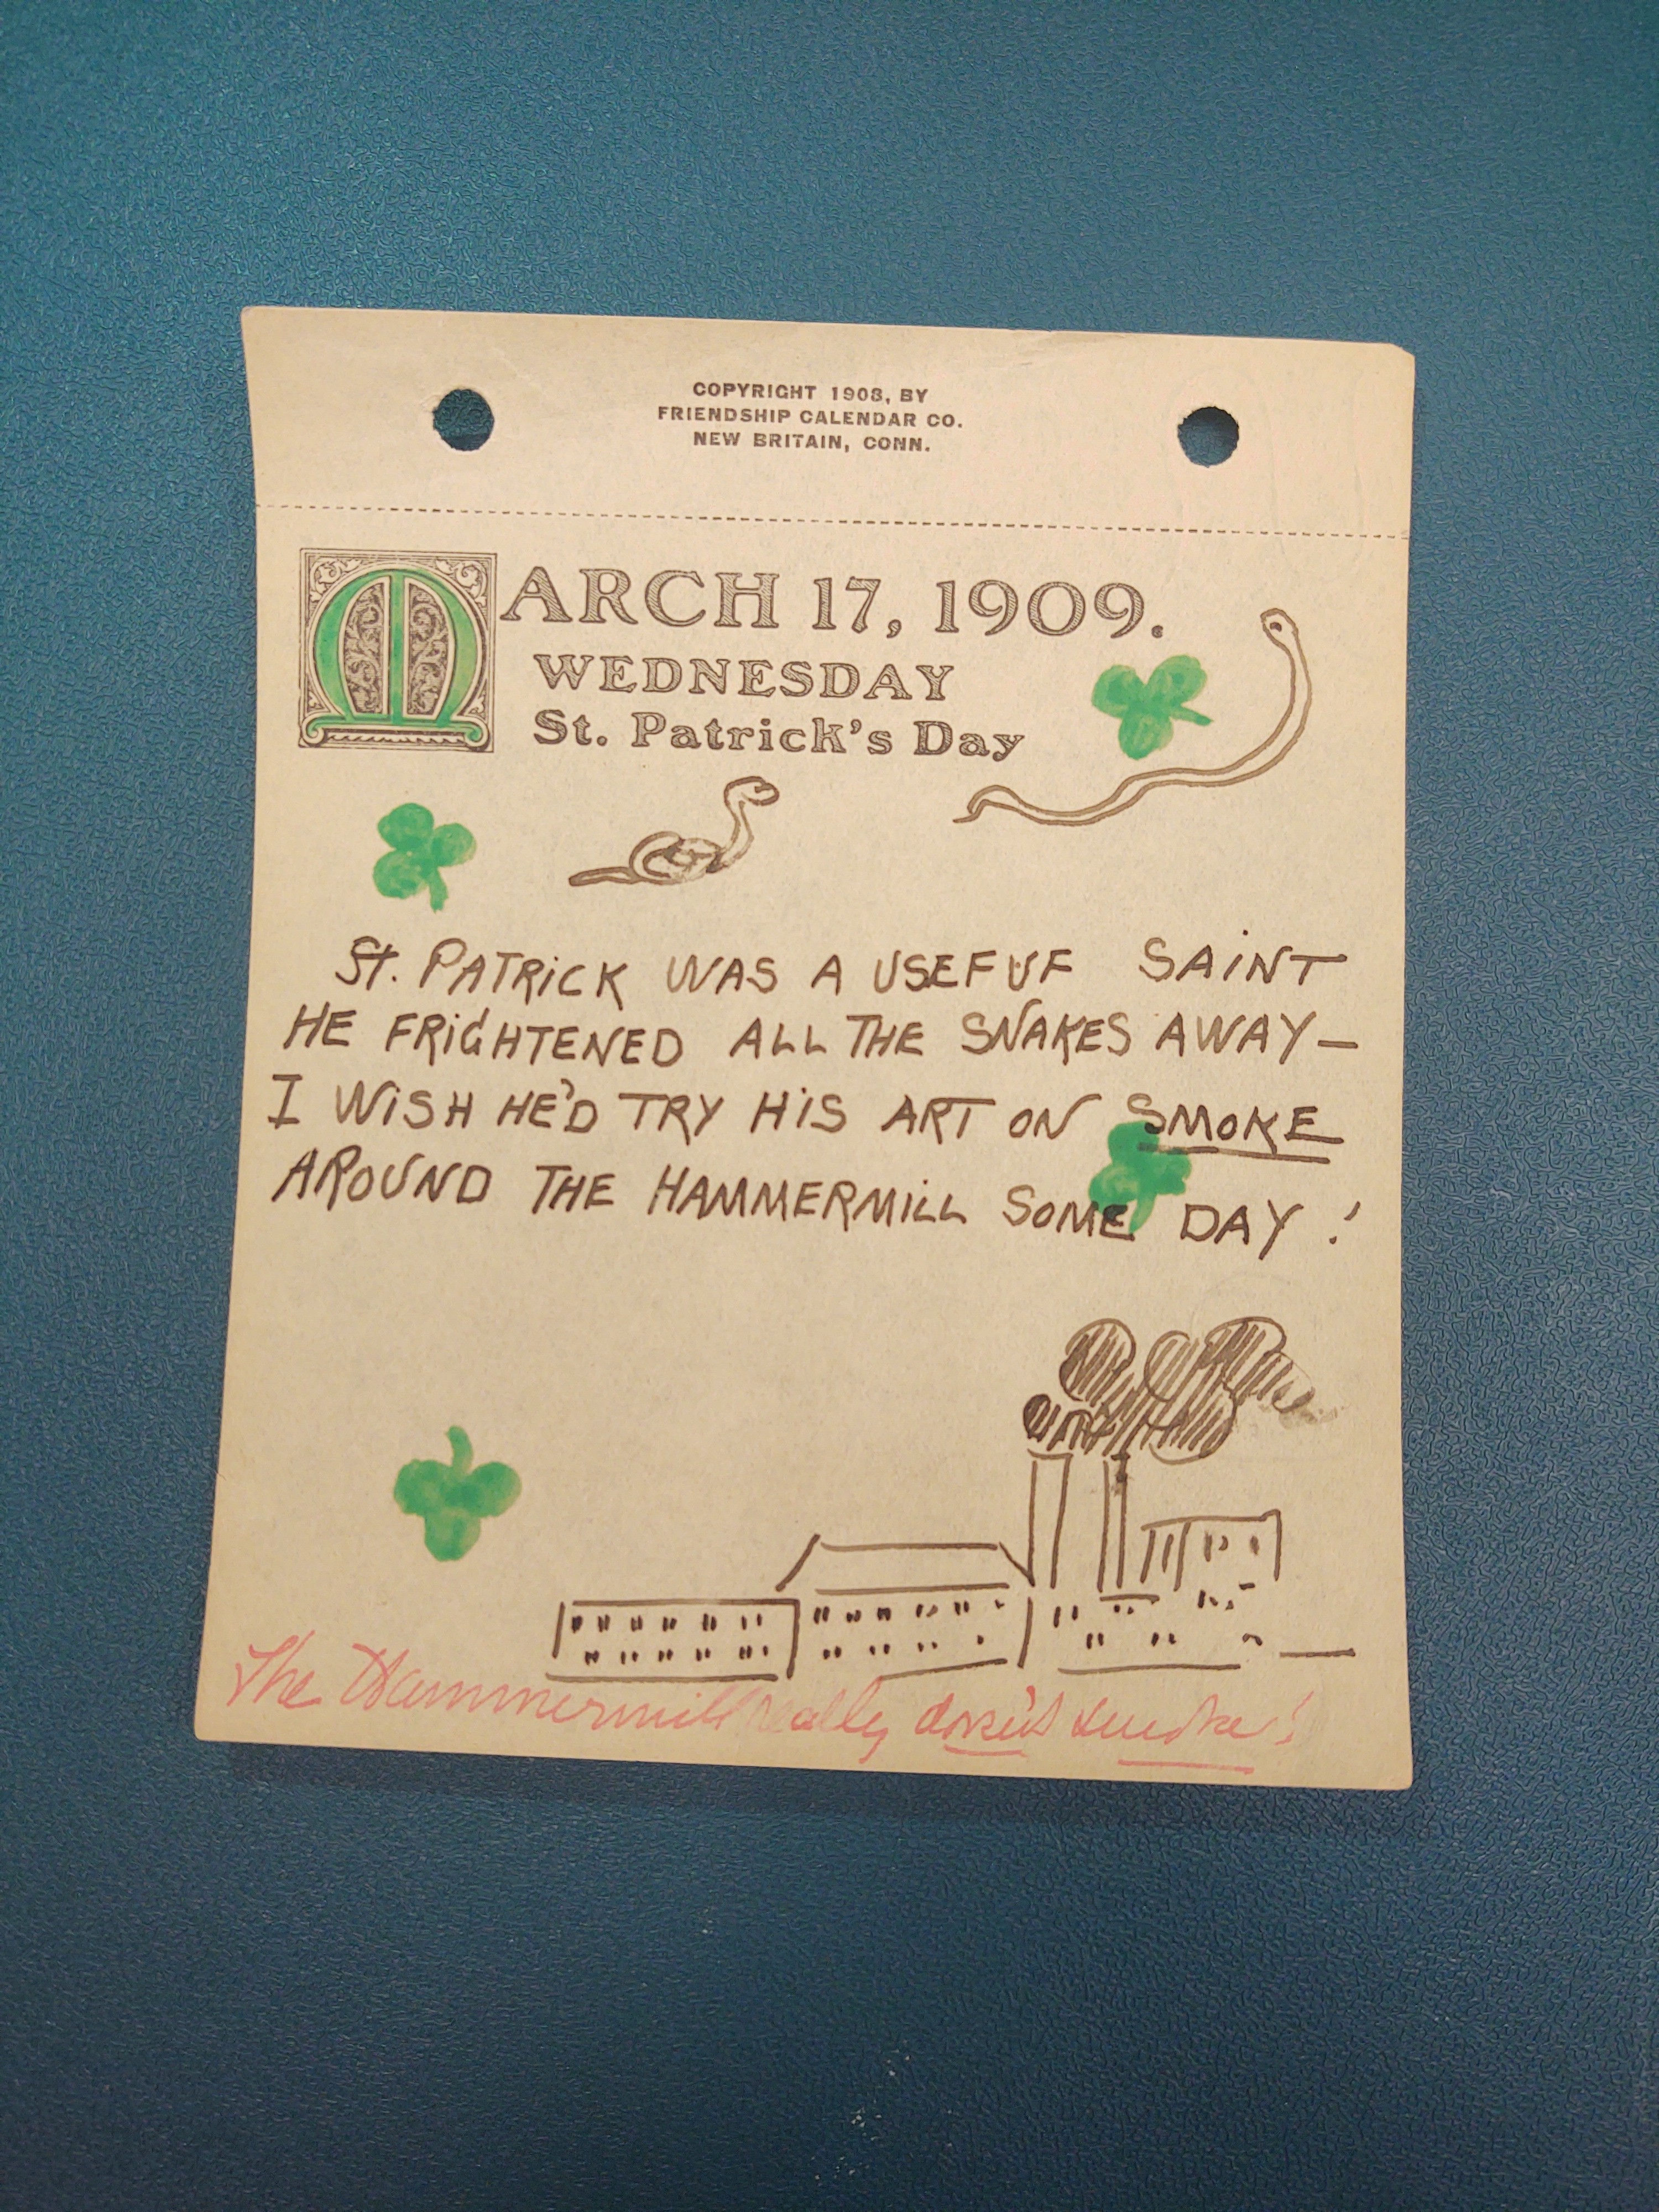 COPYRIGHT 1908, BY
FRIENDSHIP CALENDAR CO.
NEW BRITAIN, CONN.
MARCH 17, 1909.
WEDNESDAY
St. Patrick's Day
St. PATRICK WAS A USEFUF SAINT
HE FRIGHTENED ALL THE SNAKES AWAY—
I WISH HE'D TRY HIS ART ON SMOKE
AROUND THE HAMMERMILL SOME DAY!
The Hammermill really doesn't smoke!